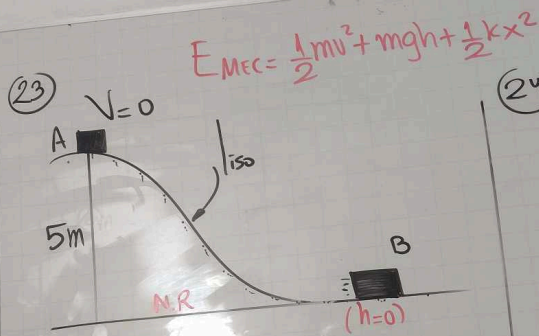 E MEC = 1/2 mv² + mgh + 1/2 kx²
23
V=0
A
liso
5m
B
N.R
(h=0)